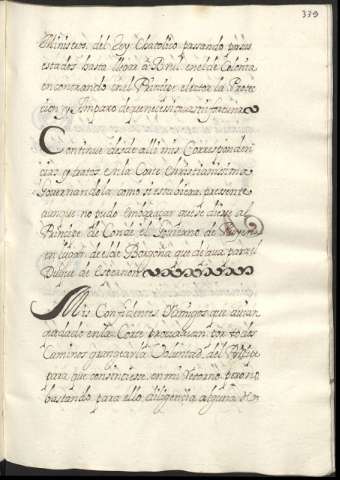 339
Ministros del Rey Chatolico passando por sus
estados hasta llegar á Brul en el de Colonia
encontrando en el Principe elector la Protec
cion y Amparo de que necesitaua mi fortuna
Continue desde alli mis Correspondenc
cias y tratos en la Corte Christianissima
Gouernandola como si estubiera presente
aunque no pude embaraçar que se diesse al
Principe de Conde el Gouierno de
en lugar de el de Borgoña que dexaua para el
Duque de Espernon
Mis Confidentes y amigos que auian
quedado en la Corte procurauan por todos
Caminos grangear la Voluntad del
para que consintiese en mi retorno pero no
bastando para ello diligençia alguna